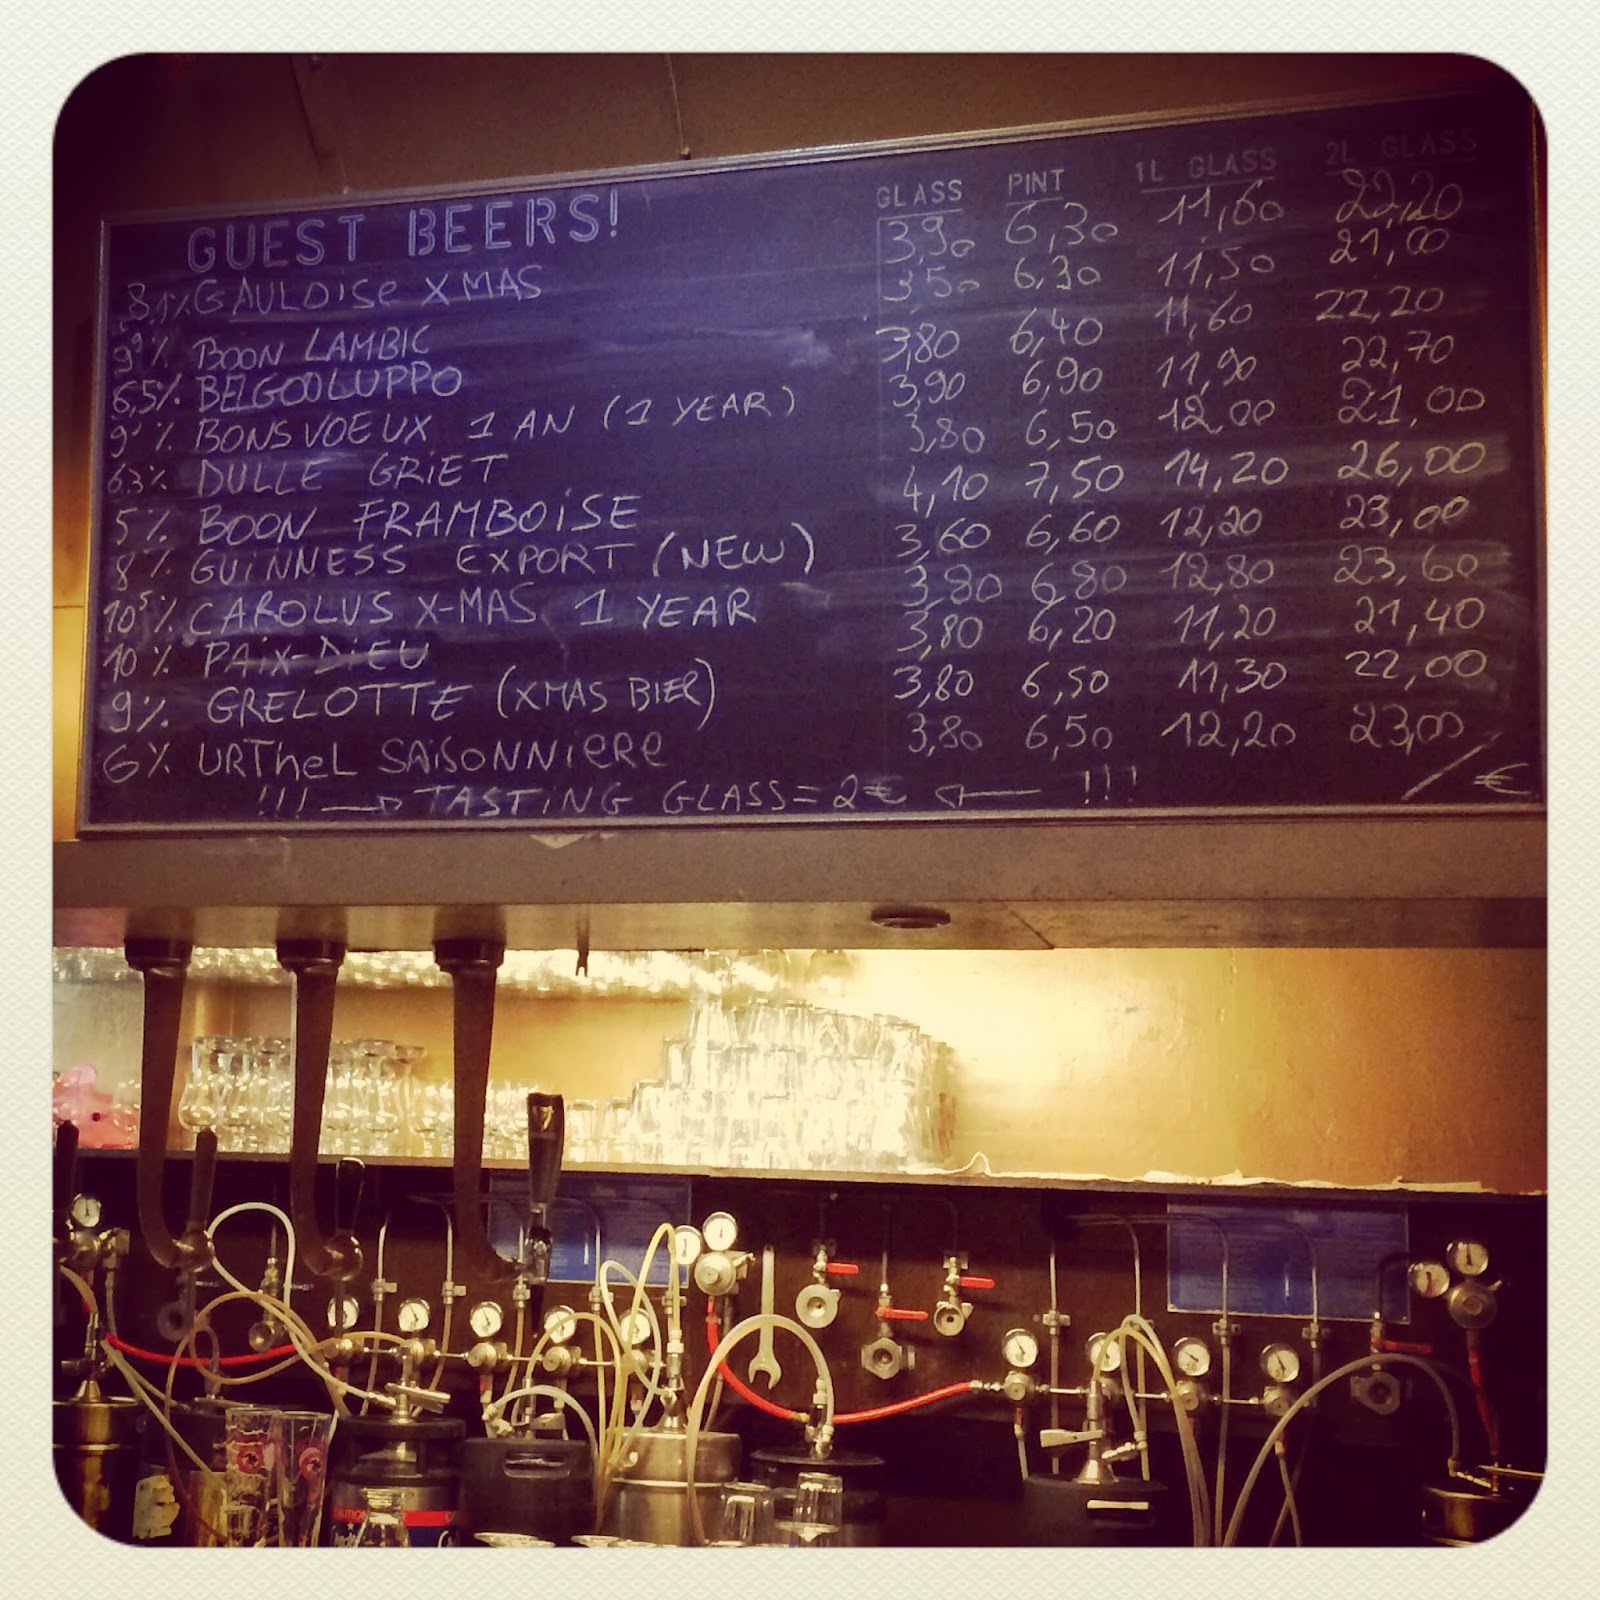 GUEST BEERS! GLASS PINT 1L GLASS 2L GLASS
8,1% GAULOISE XMAS 3,90 6,30 11,60 22,20
% BOON LAMBIC 3,50 6,30 11,50 21,00
6,5% BELGOOLUPPO 3,80 6,40 11,60 22,20
9'% BONSVOEUX 1 AN (1 YEAR) 3,90 6,90 11,90 22,70
6,3% DULLE GRIET 3,80 6,50 12,00 21,00
5% BOON FRAMBOISE 4,10 7,50 14,20 26,00
8% GUINNESS EXPORT (NEW) 3,60 6,60 12,20 23,00
10⁵% CAROLUS X-MAS 1 YEAR 3,80 6,80 12,80 23,60
10% PAIX-DIEU 3,80 6,20 11,20 21,40
9% GRELOTTE (XMAS BIER) 3,80 6,50 11,30 22,00
6% URTHEL SAISONNIERE 3,80 6,50 12,20 23,00
!!! → TASTING GLASS = 2€ ← !!! / €